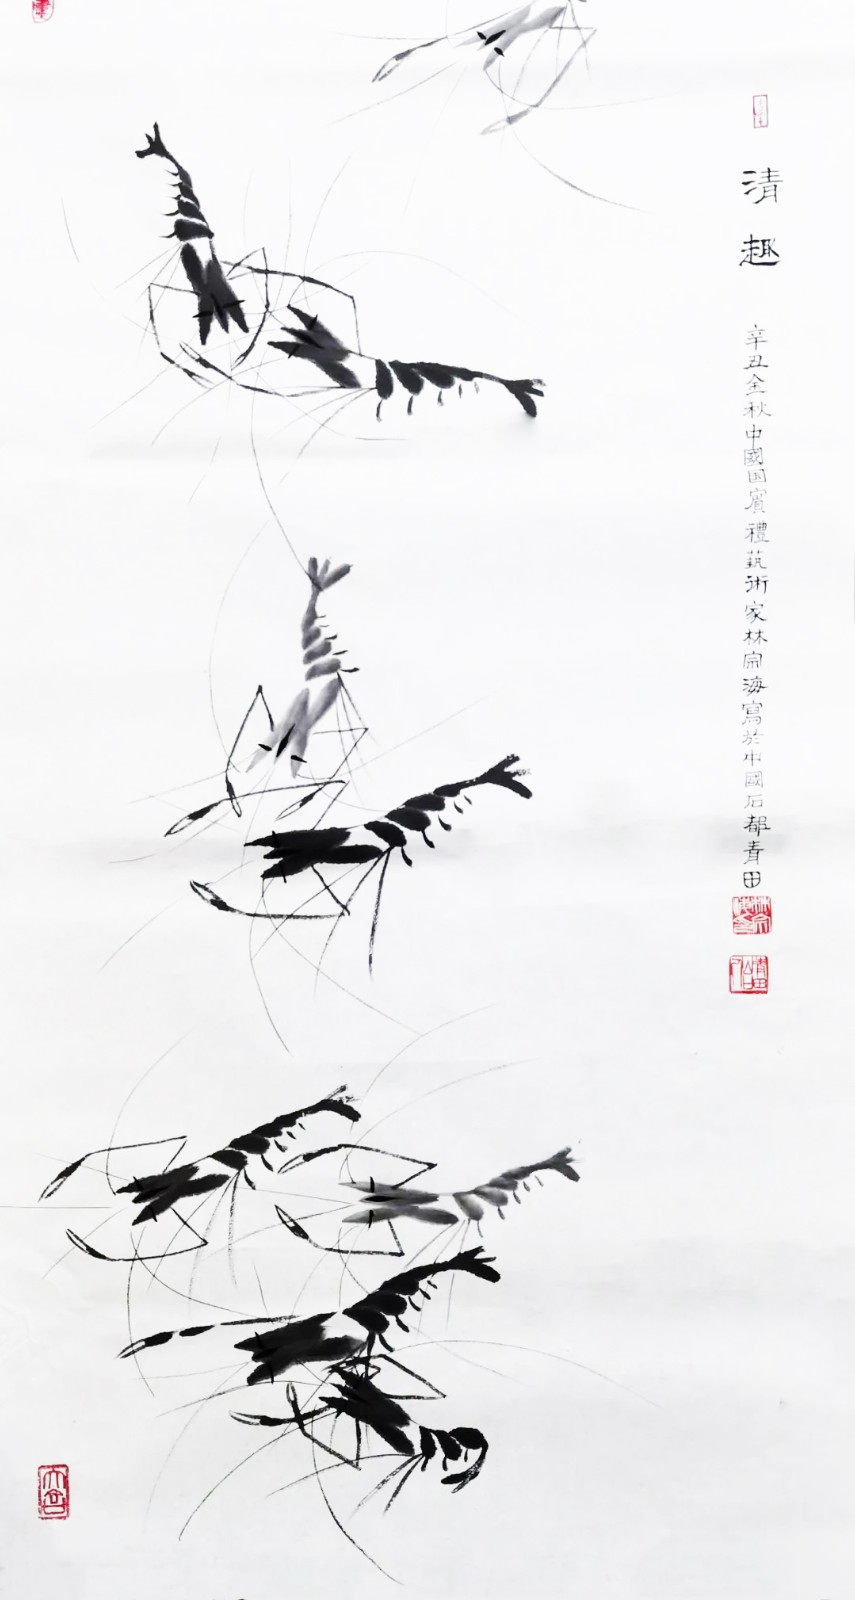 清趣
辛丑金秋中國国賓禮藝術家林宗海寫於中國石都青田